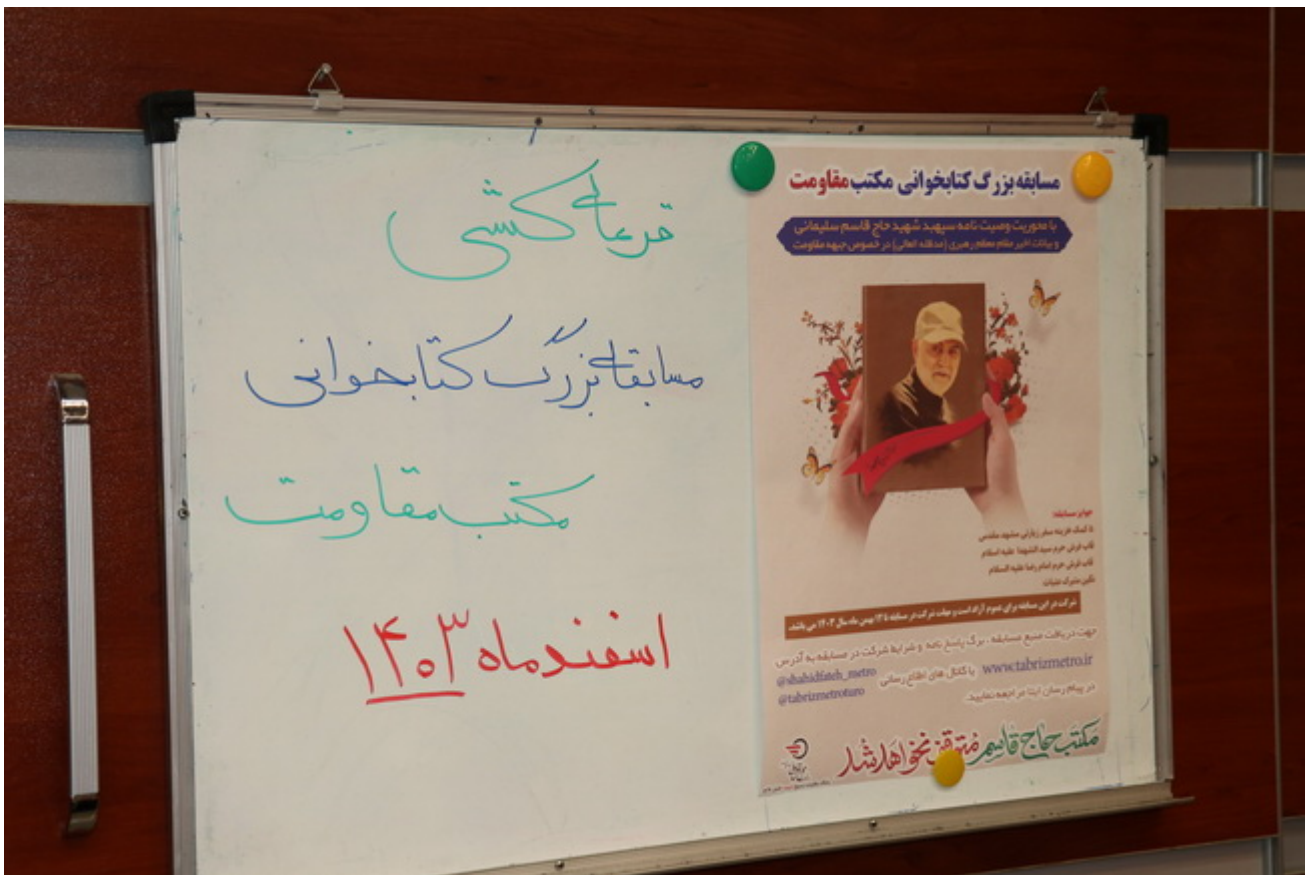 قرعه‌کشی
مسابقه‌ی بزرگ کتابخوانی
مکتب مقاومت
اسفند ماه ۱۴۰۳
مسابقه بزرگ کتابخوانی مکتب مقاومت
با محوریت وصیت نامه سپهبد شهید حاج قاسم سلیمانی
و بیانات اخیر مقام معظم رهبری (مدظله العالی) در خصوص جبهه مقاومت
جوایز مسابقه:
کمک هزینه سفر زیارتی مشهد مقدس
قاب فرش حرم سید الشهدا علیه السلام
قاب فرش حرم امام رضا علیه السلام
نگین متبرک عتبات
شرکت در این مسابقه برای عموم آزاد است و مهلت شرکت در مسابقه تا ۱۳ بهمن ماه سال ۱۴۰۳ می باشد.
جهت دریافت منبع مسابقه، برگ پاسخ نامه و شرایط شرکت در مسابقه به آدرس
www.tabrizmetro.ir یا کانال های اطلاع رسانی @shahidfateh_metro
@tabrizmetroturo
در پیام رسان ایتا مراجعه نمایید.
مکتب حاج قاسم متوقف نخواهد شد